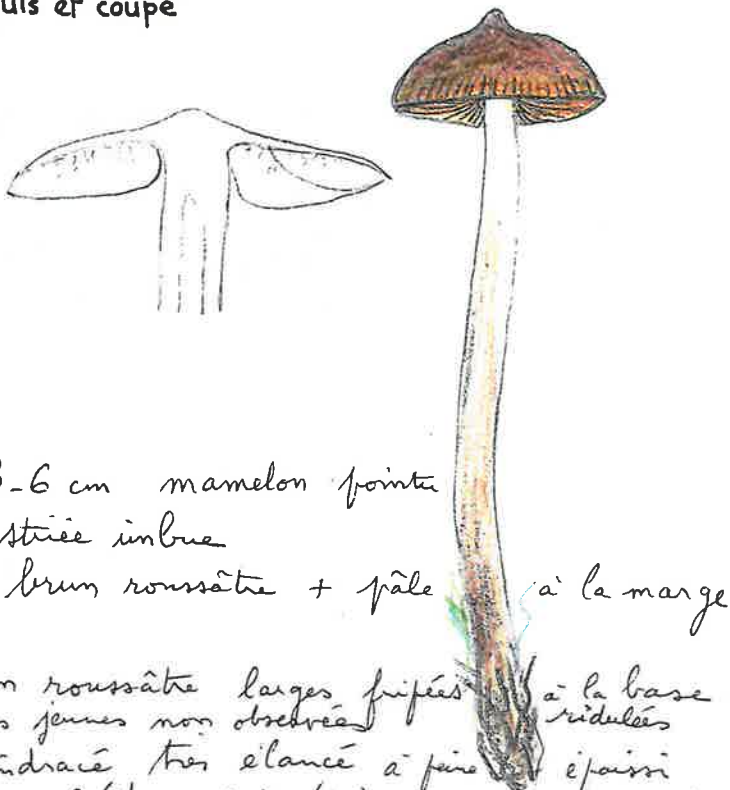 uis et coupe
3-6 cm mamelon pointu
striée imbue
brun roussâtre + pâle à la marge
n roussâtre larges fripées à la base
s jeunes non observées ridulées
indracé très élancé à peine épaissi